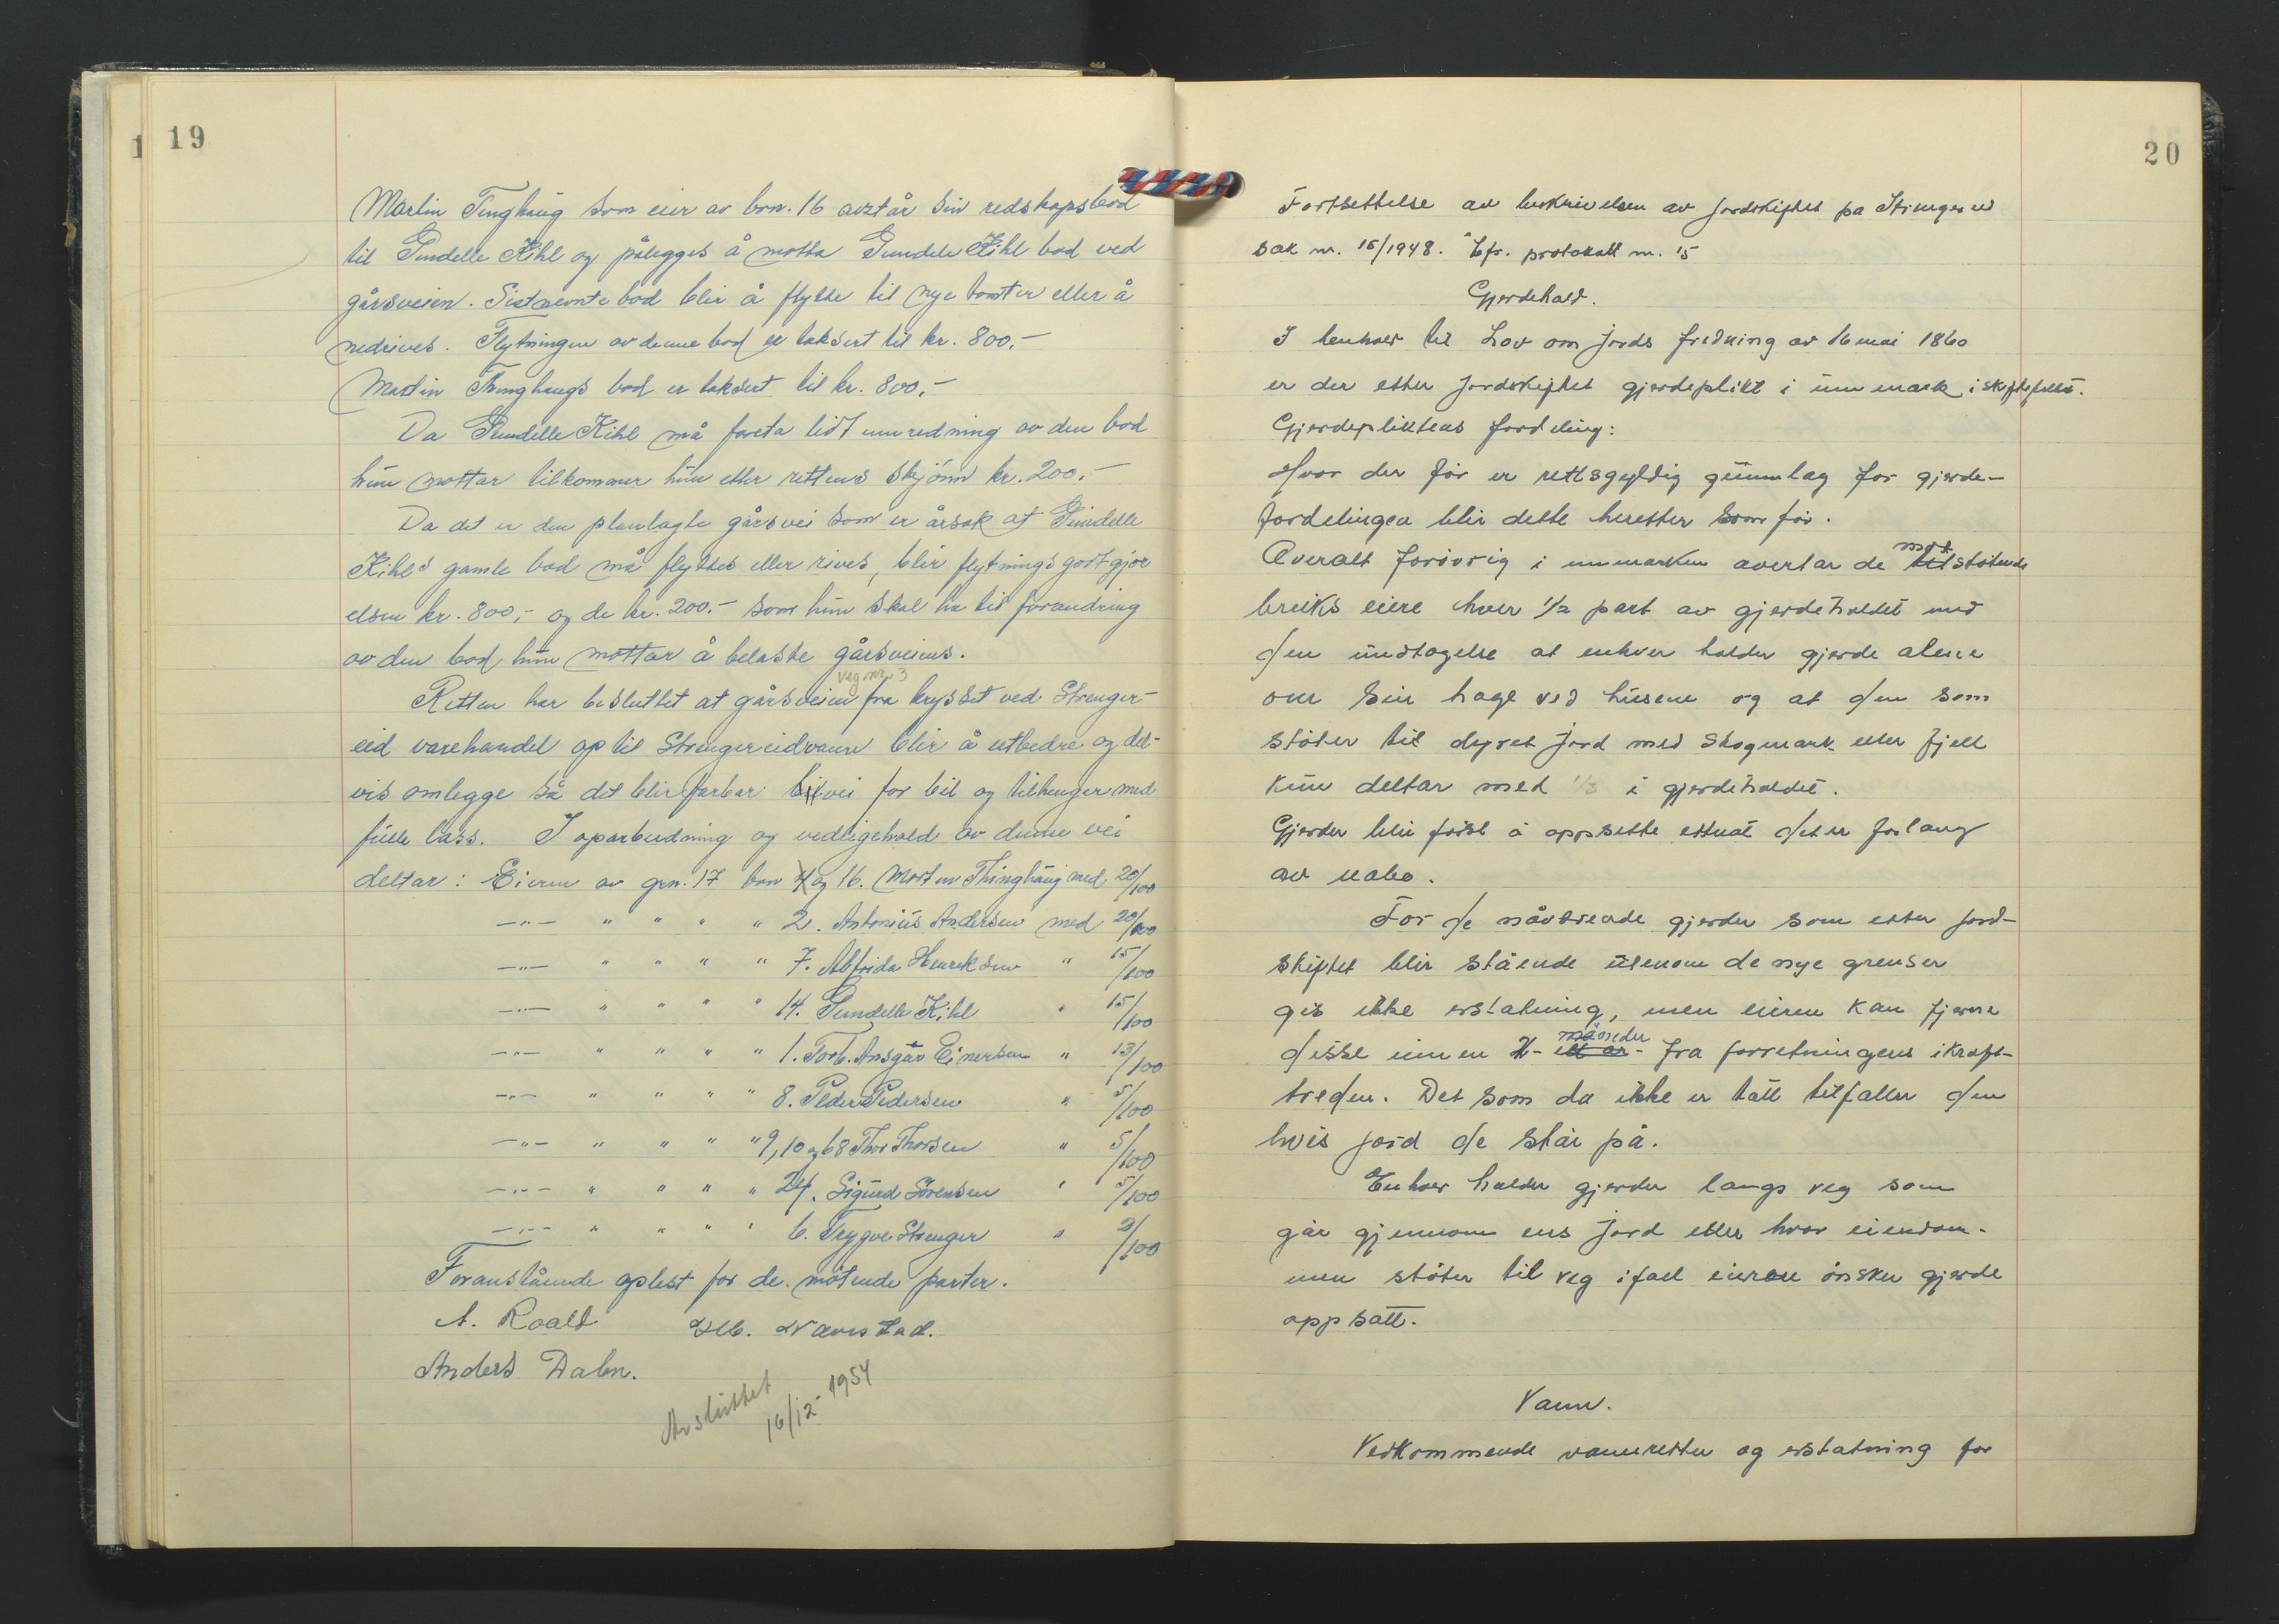 19
Martin Tinghaug som eier av brn. 16 avstår sin redskapsbod
til Gundelle Kihl og pålegges å motta Gundele Kihl bod ved
gårsveien. Sistnevnte bod blir å flytte til nye tomter eller å
nedrives. Flytningen av denne bod er taksert til kr. 800,-
Martin Thinghaugs bod er taksert til kr. 800,-
Da Gundelle Kihl må foreta litt innredning av den bod
hun mottar tilkommer hun etter rettens skjønn kr. 200.-
Da det er den planlagte gårsvei som er årsak at Gundelle
Kihls gamle bod må flyttes eller rives, blir flytningsgodtgjør
elsen kr. 800,- og de kr. 200.- som hun skal ha til forandring
av den bod hun mottar å belaste gårsveiens.
veg nr. 3
Retten har besluttet at gårsveien fra krysset ved Strenger-
eid varehandel op til Strengereidvann blir å utbedre og del-
vis omlegge så det blir farbar bilvei for bil og tilhenger med
fulle lass. I oparbeidning og vedligehold av denne vei
deltar: Eieren av grn. 17 brn 4 og 16. Martin Thinghaug med 20/100
-"- " " " " 2. Antonius Andersen med 20/100
-"- " " " " 7. Alfrida Henriksen " 15/100
-"- " " " " 14. Gundelle Kihl " 15/100
-"- " " " " 1. Torb. Ansgar Einersen " 13/100
-"- " " " " 8. Peder Pedersen " 5/100
-"- " " " " 9, 10 og 68 Thor Thorsen " 5/100
-"- " " " " 24. Sigurd Sørensen " 5/100
-"- " " " " 6. Trygve Strenger " 2/100
Foranstående oplest for de møtende parter.
A. Roald
Anders Dalen.
Avsluttet
16/12-1954
20
Fortsettelse av beskrivelsen av jordskiftet på Strengereid
sak nr. 15/1948. Jfr. protokoll nr. 15
Gjerdehold.
I henhold til Lov om jords fredning av 16 mai 1860
er der etter jordskiftet gjerdeplikt i innmark i skiftefeltet.
Gjerdepliktens fordeling:
Hvor der før er rettsgyldig grunnlag for gjerde-
fordelingen blir dette heretter som før.
mot
Overalt forøvrig i innmarken overtar de tilstøtende
bruks eiere hver 1/2 part av gjerdeholdet med
den undtagelse at enhver holder gjerde alene
om sin hage ved husene og at den som
støter til dyrket jord med skogmark eller fjell
kun deltar med 1/3 i gjerdeholdet.
Gjerder blir først å oppsette ettuat det er forlang
av nabo.
For de nåværende gjerder som etter jord-
skiftet blir stående utenom de nye grenser
gis ikke erstatning, men eieren kan fjerne
måneder
disse innen ett år - fra forretningens ikraft-
treden. Det som da ikke er tatt tilfaller den
hvis jord de står på.
Enhver holder gjerder langs veg som
går gjennom ens jord eller hvor eiendom-
men støter til veg ifall eieren ønsker gjerde
oppsatt.
Vann.
Vedkommende vannretter og erstatning for